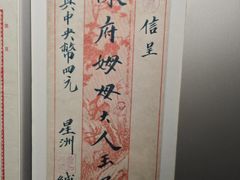 信呈
陳府姆母大人玉
其中央幣四元
星洲